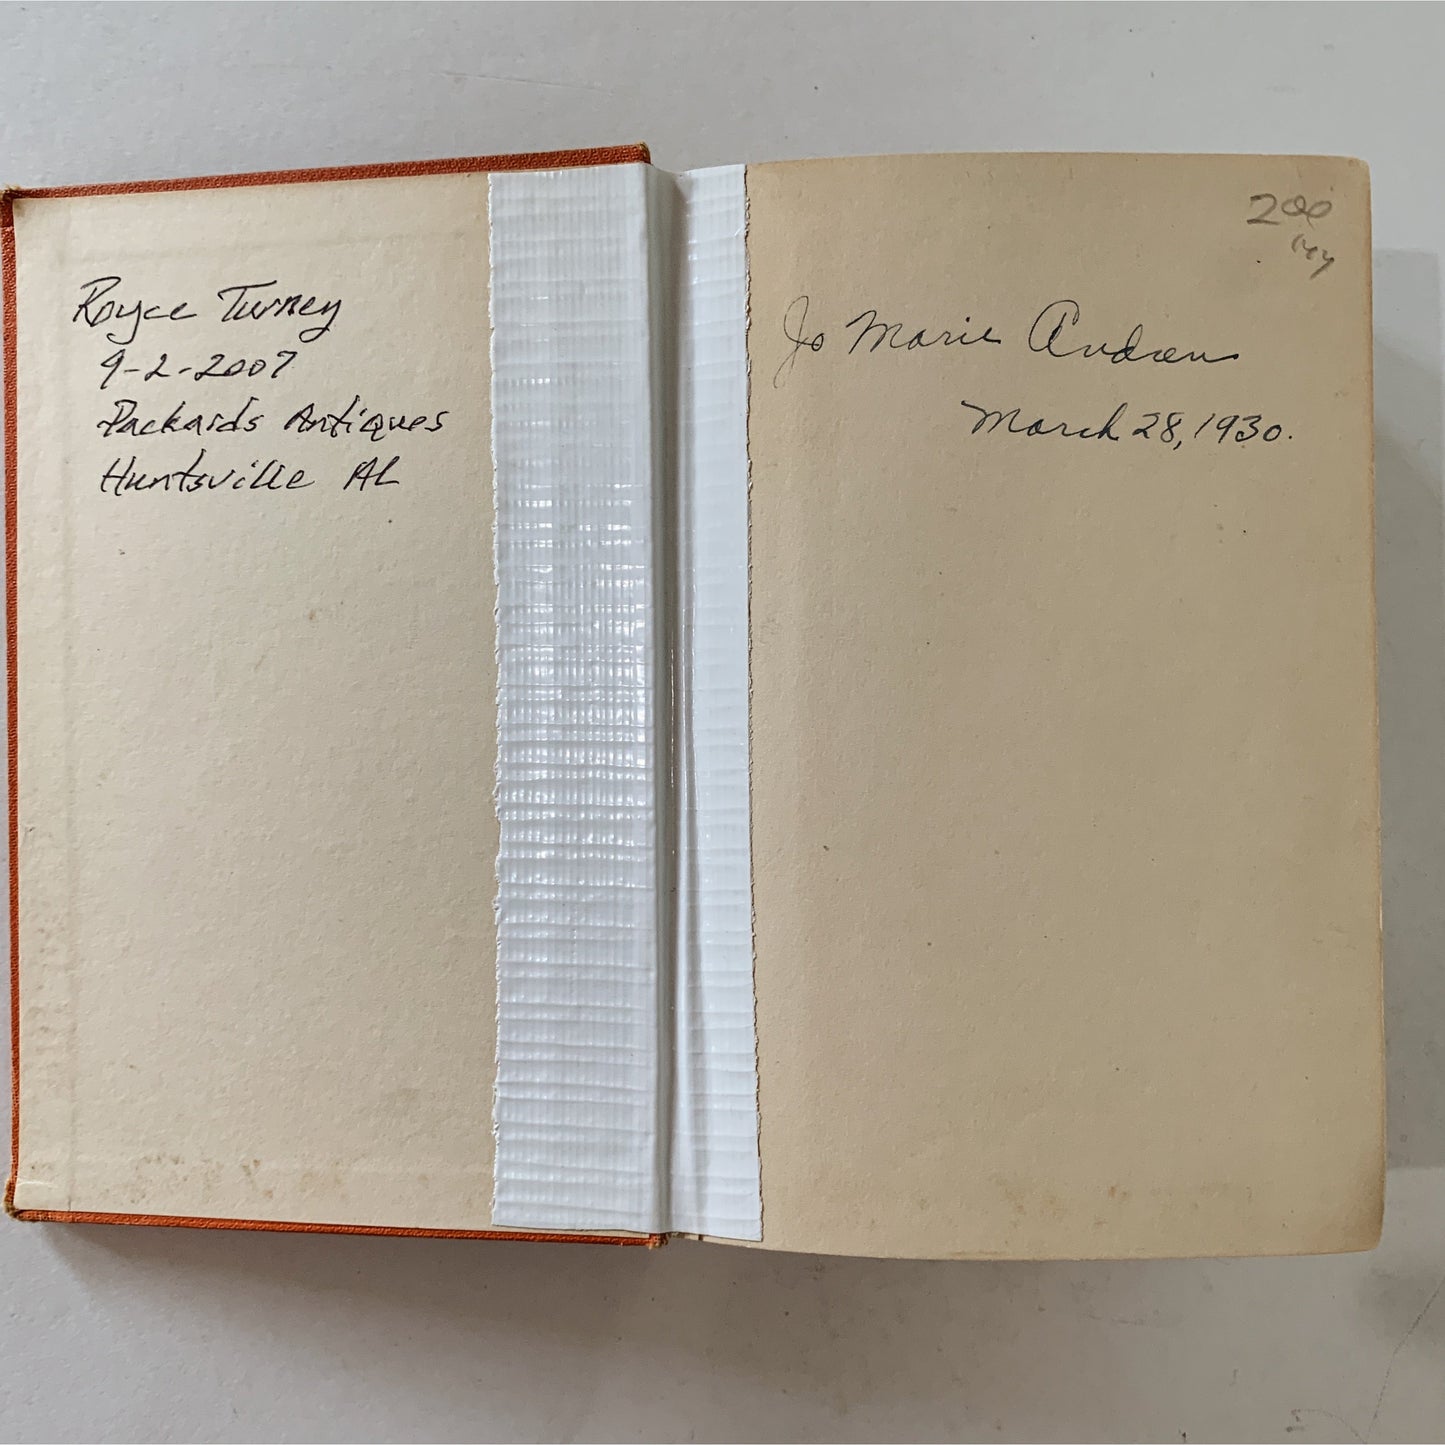 Royce Turney
9-2-2007
Packards Antiques
Huntsville AL
200
Jo Marie Andrews
March 28, 1930.